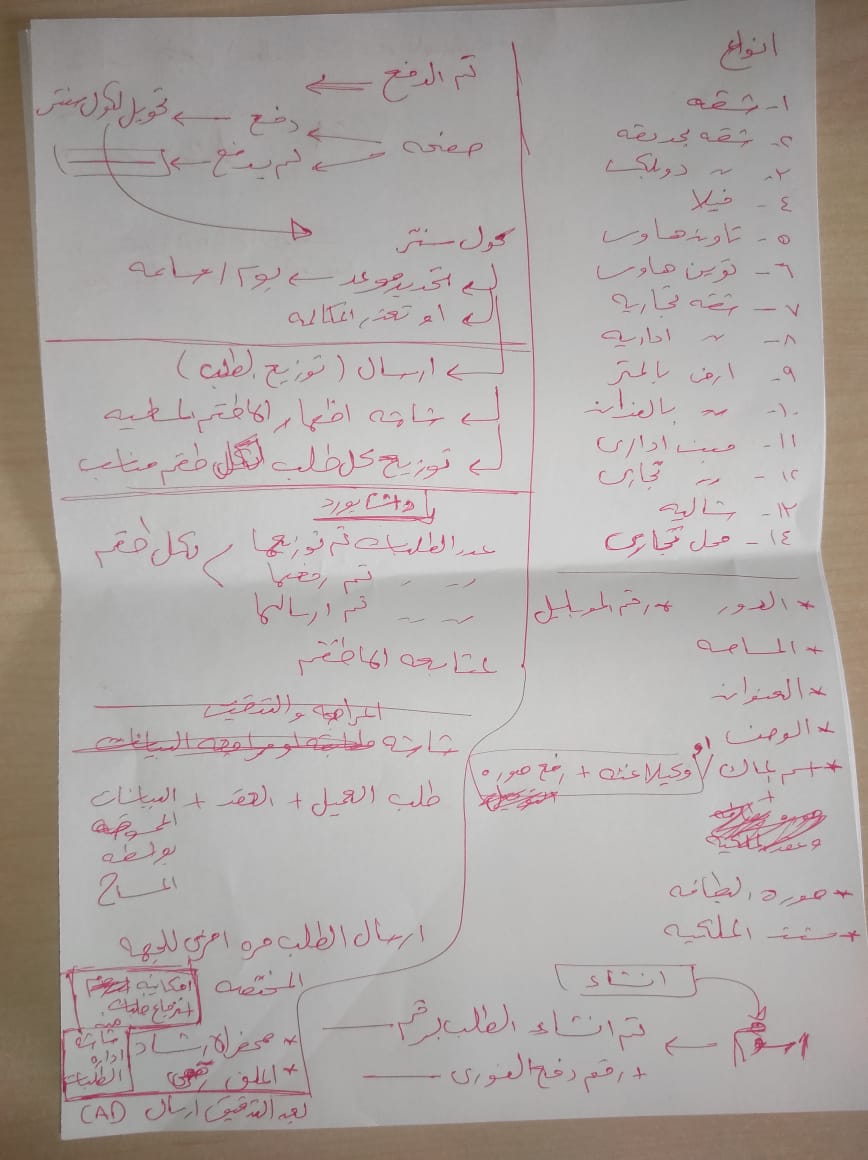 انواع
١- شقه
٢- شقه بحديقه
٣- " دوبلكس
٤- فيلا
٥- تاون هاوس
٦- توين هاوس
٧- شقه تجاريه
٨- " اداريه
٩- ارض بالمتر
١٠- " بالفدان
١١- مبنى ادارى
١٢- " تجارى
١٣- شاليه
١٤- محل تجارى
* الدور * رقم الموبايل
* المساحه
* العنوان
* الوصف
* اسم المالك / او وكيلا عنه + رفع صوره التوكيل
+
* صوره البطاقه
* سند الملكيه
انشاء
رسوم ← تم انشاء الطلب برقم
+ رقم دفع الفورى
تم الدفع ←
صفحه ← دفع ← تحويل لكول سنتر
← لم يدفع ←
كول سنتر
← تحديد موعد ← يوم / ساعه
← او تعذر المكالمه
← ارسال (توزيع الطلب)
← شاشه اظهار الاطقم
← توزيع كل طلب لكل طقم مناسب
داش بورد
عدد الطلبات تم توزيعها / لكل طقم
" " تم رفعها
" " تم ارسالها
متابعه الاطقم
المراجعه والتدقيق
شاشه مراجعه البيانات
طلب العميل + العقد + البيانات
بواسطه
المساح
ارسال الطلب مره اخرى للجهه
المختصه
امكانيه
استرجاع طلبات
من
شاشه
اداره
الطلبات
* محضر الارشاد
* الملف
بعد التدقيق ارسال (AI)